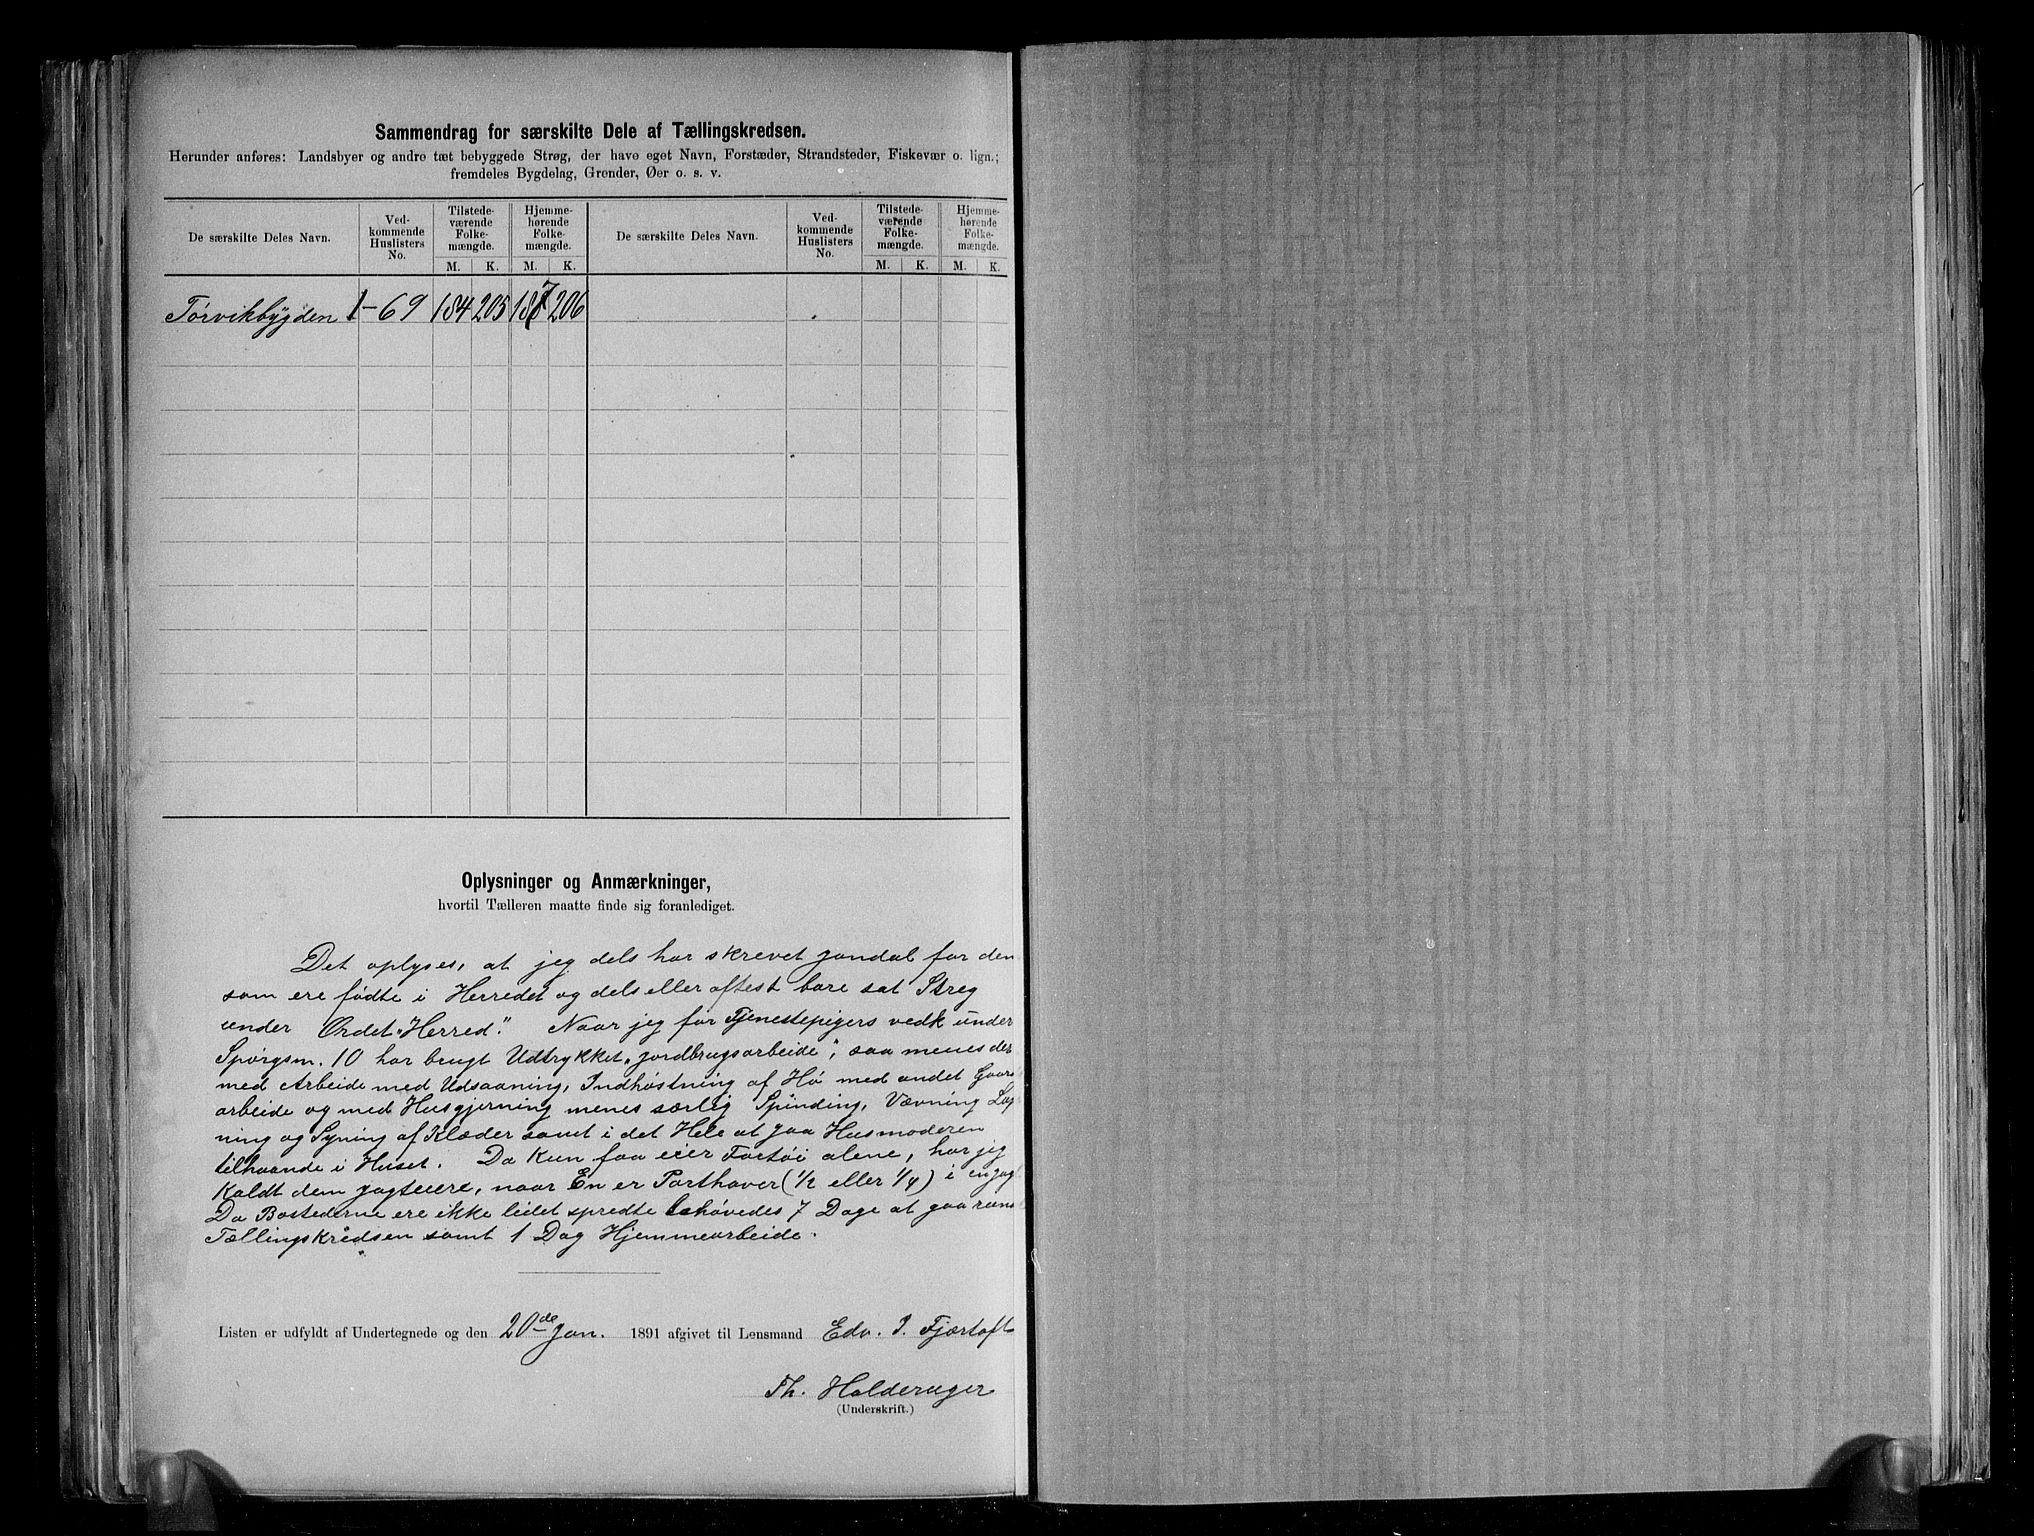 Sammendrag for særskilte Dele af Tællingskredsen.
Herunder anføres: Landsbyer og andre tæt bebyggede Strøg, der have eget Navn, Forstæder, Strandsteder, Fiskevær o. lign.;
fremdeles Bygdelag, Grender, Øer o. s. v.
De særskilte Deles Navn. Ved- kommende Huslisters No. Tilstede- værende Folke- mængde. Hjemme- hørende Folke- mængde. De særskilte Deles Navn. Ved- kommende Huslisters No. Tilstede- værende Folke- mængde. Hjemme- hørende Folke- mængde.
M. K. M. K. M. K. M. K.
Tørvikbygden 1-69 184 205 187 206
Oplysninger og Anmærkninger,
hvortil Tælleren maatte finde sig foranlediget.
Det oplyses, at jeg dels har skrevet Jondal for den
som ere fødte i Herredet og dels eller oftest bare sat Streg
under Ordet „Herred". Naar jeg for Tjenestepigers vedk under
Spørgsm. 10 har brugt Udtrykket „Jordbrugsarbeide", saa menes der
med Arbeide med Udsaaning, Indhøstning af Hø med andet
arbeide og med Husgjerning menes særlig Spinding, Vævning
ning og Syning af Klæder samt i det Hele at gaa Husmoderen
tilhaande i Huset. Da kun faa eier Fartøi alene, har jeg
kaldt dem Jagteiere, naar En er Parthaver (1/2 eller 1/4) i en
Da Bostederne ere ikke lidet spredte behøvedes 7 Dage at gaa
Tællingskredsen samt 1 Dag Hjemmearbeide.
Listen er udfyldt af Undertegnede og den 20de Jan. 1891 afgivet til Lensmand Edv. I. Fjærtoft
Th. Halderager
(Underskrift.)